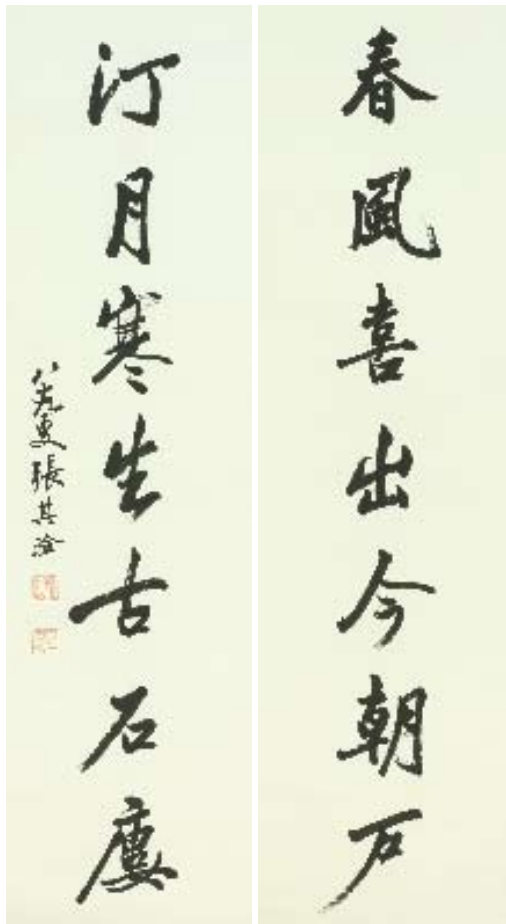 春風喜出今朝戶
汀月寒生古石廔
叟張其淦